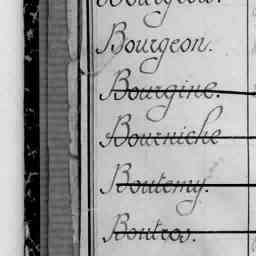 Bourgeon.
Bourgine.
Bourniche
Boutemy.
Boutros.